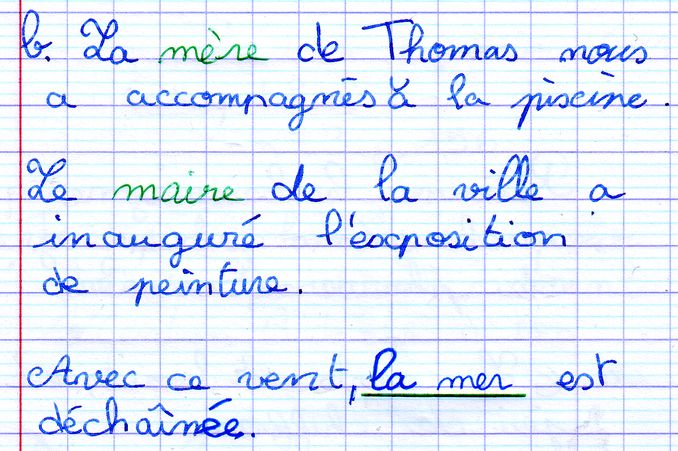 b. La mère de Thomas nous
a accompagnés à la piscine.
Le maire de la ville a
inauguré l'exposition
de peinture.
Avec ce vent, la mer est
déchaînée.